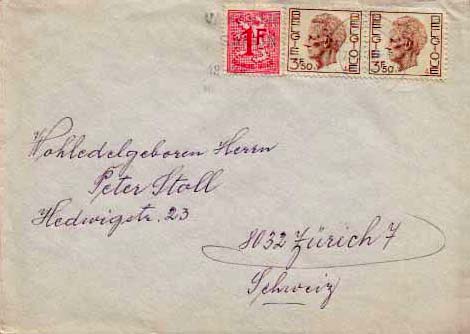 1F
BELGIE-BELGIQUE
3F50
BELGIE-BELGIQUE
3F50
Wohledelgeboren Herrn
Peter Stoll
Hedwigstr. 23
8032 Zürich 7
Schweiz